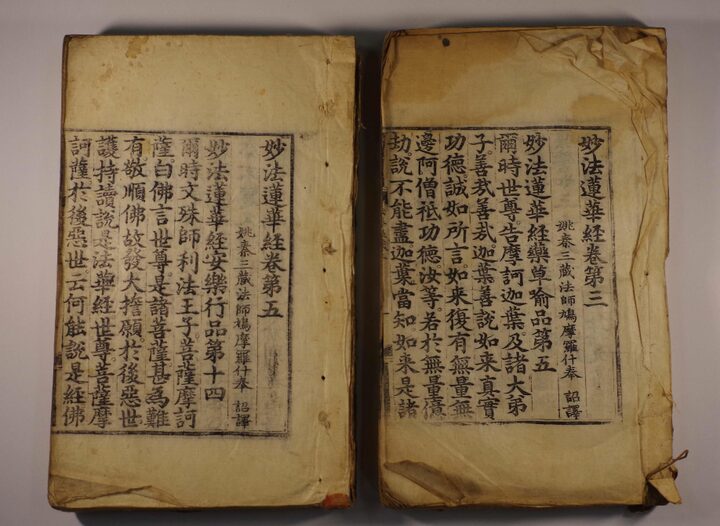 妙法蓮華經卷第三
姚秦三藏法師鳩摩羅什奉 詔譯
妙法蓮華經藥草喻品第五
爾時世尊告摩訶迦葉及諸大弟
子善哉善哉迦葉善說如來真實
功德誠如所言如來復有無量無
邊阿僧祇功德汝等若於無量億
劫說不能盡迦葉當知如來是諸
妙法蓮華經卷第五
姚秦三藏法師鳩摩羅什奉 詔譯
妙法蓮華經安樂行品第十四
爾時文殊師利法王子菩薩摩訶
薩白佛言世尊是諸菩薩甚爲難
有敬順佛故發大誓願於後惡世
護持讀說是法華經世尊菩薩摩
訶薩於後惡世云何能說是經佛